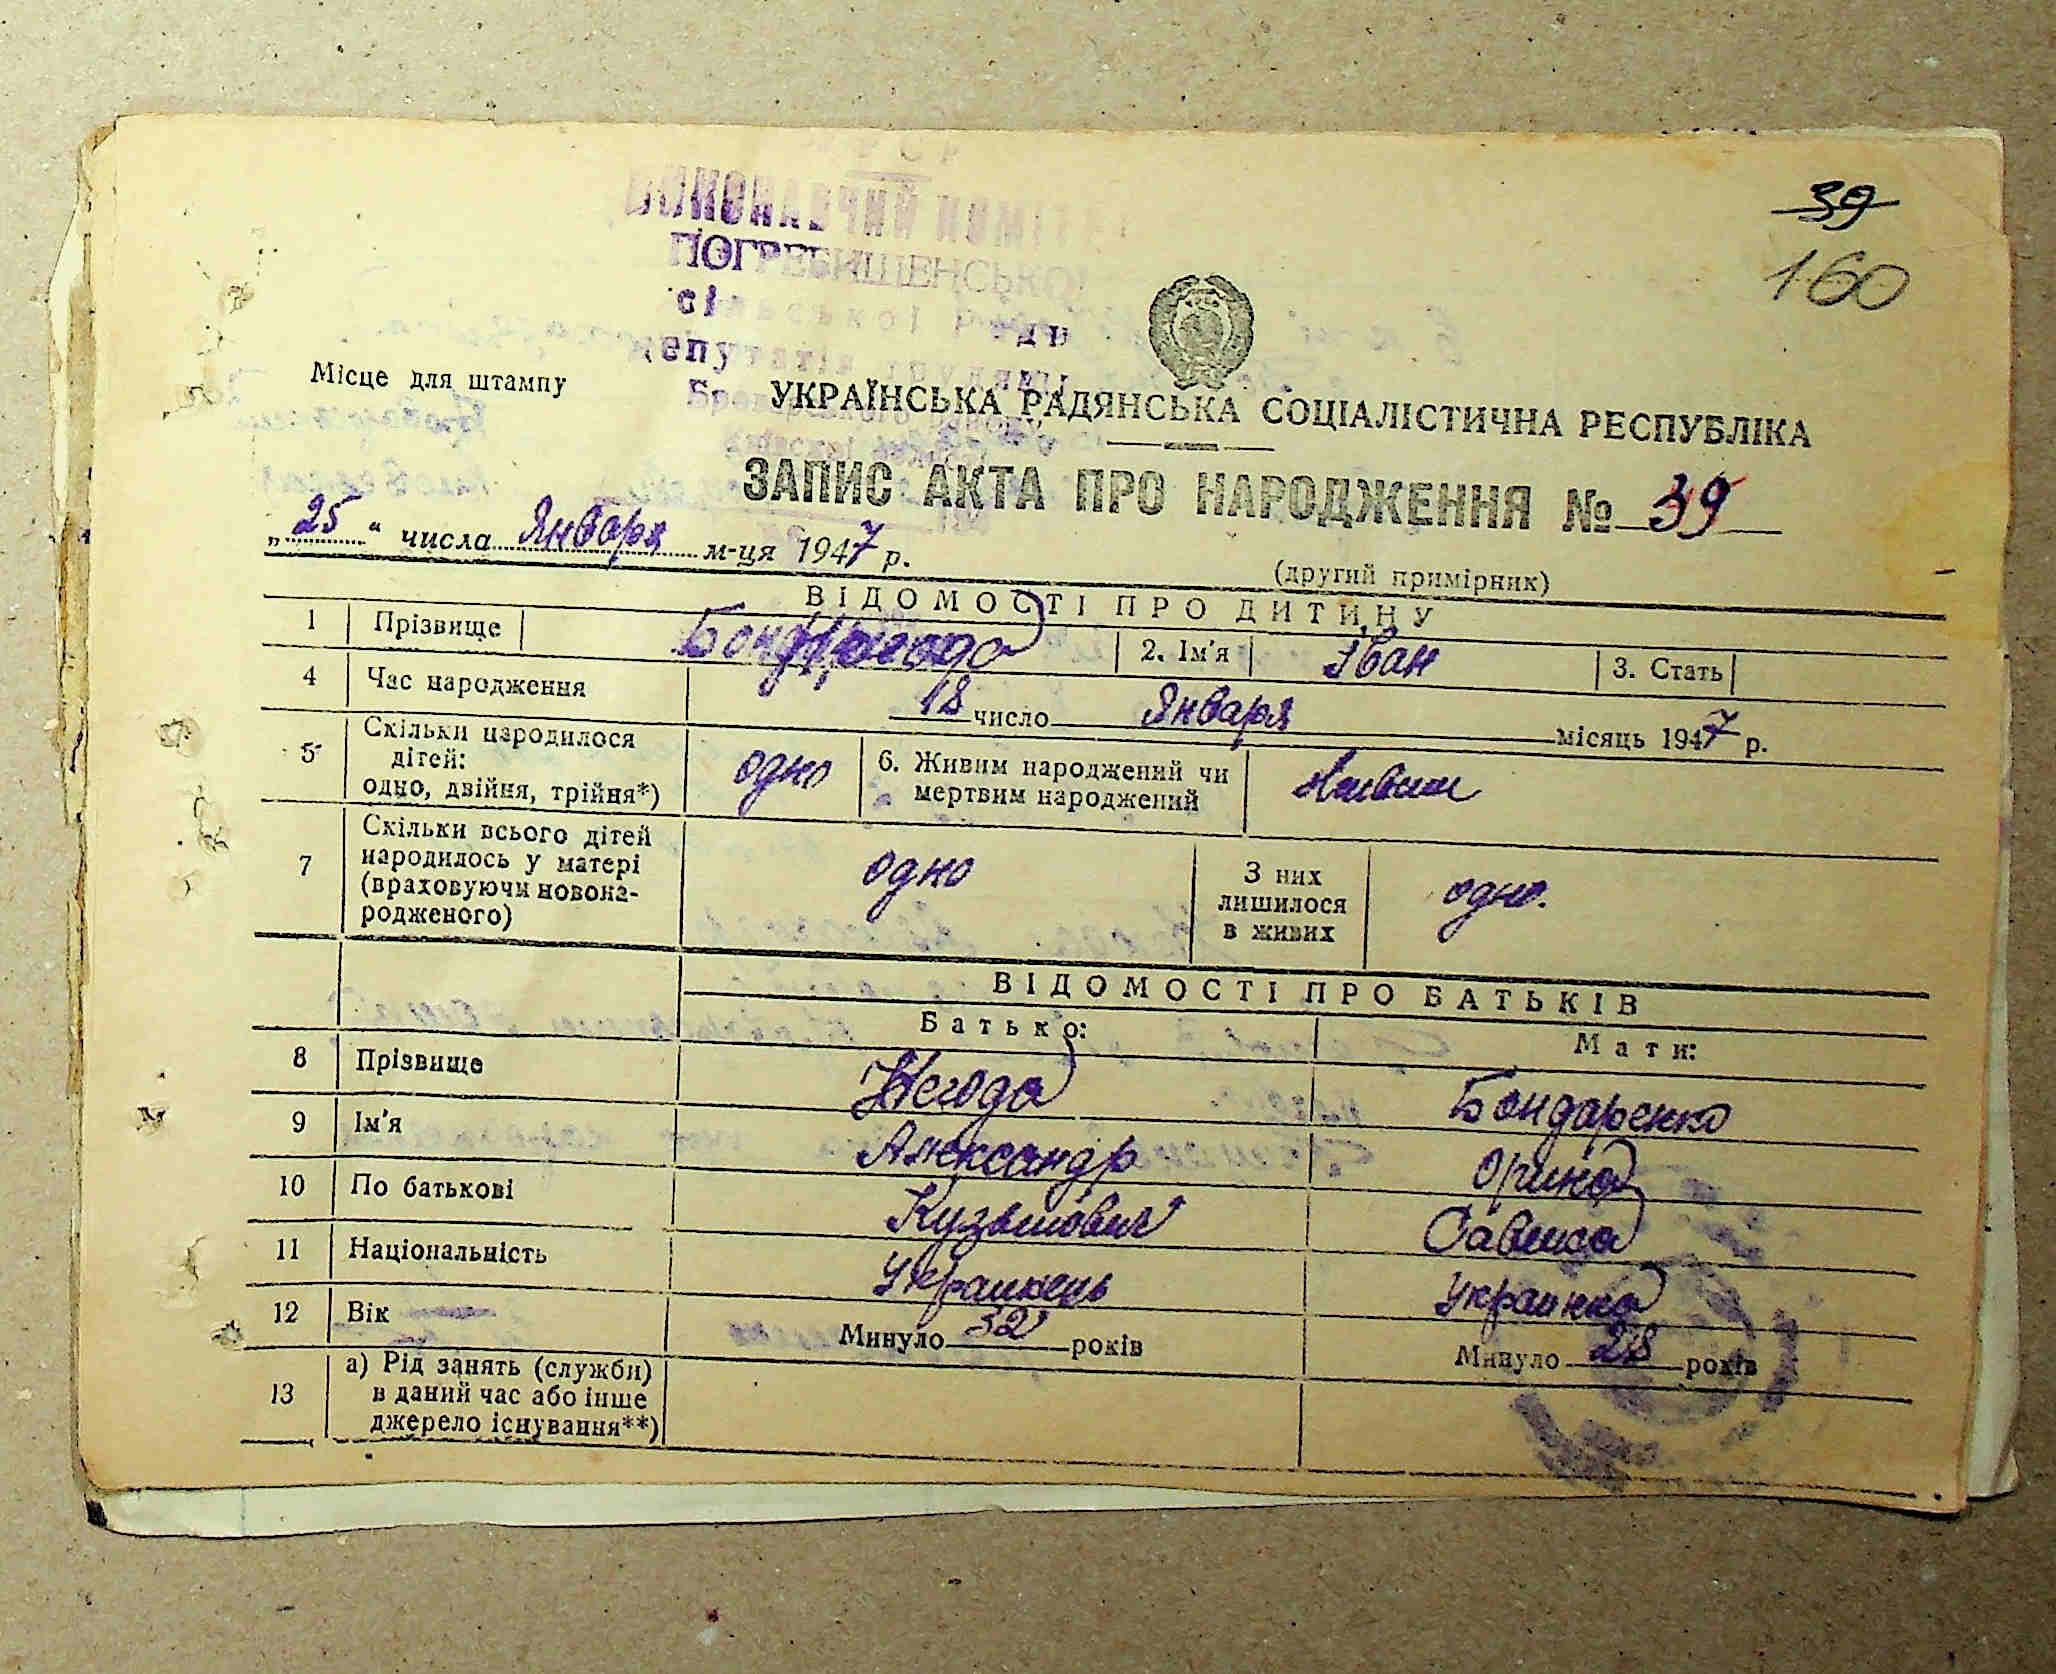 39
160
ВИКОНАВЧИЙ КОМІТЕТ
ПОГРЕБИЩЕНСЬКОЇ
сільської ради
депутатів трудящих
Броварського району
Київської
Місце для штампу
УКРАЇНСЬКА РАДЯНСЬКА СОЦІАЛІСТИЧНА РЕСПУБЛІКА
ЗАПИС АКТА ПРО НАРОДЖЕННЯ № 39
„25“ числа Января м-ця 1947 р.
(другий примірник)
ВІДОМОСТІ ПРО ДИТИНУ
1 Прізвище 2. Ім'я Іван 3. Стать
4 Час народження 18 число Января місяць 1947 р.
5 Скільки народилося дітей: одно, двійня, трійня*) одно 6. Живим народжений чи мертвим народжений Живим
7 Скільки всього дітей народилось у матері (враховуючи новонародженого) одно З них лишилося в живих одно.
ВІДОМОСТІ ПРО БАТЬКІВ
Батько: Мати:
8 Прізвище Негода Бондаренко
9 Ім'я Александр Орина
10 По батькові Кузьмович
11 Національність Украинець Украинка
12 Вік Минуло 32 років Минуло 28 років
13 а) Рід занять (служби) в даний час або інше джерело існування**)